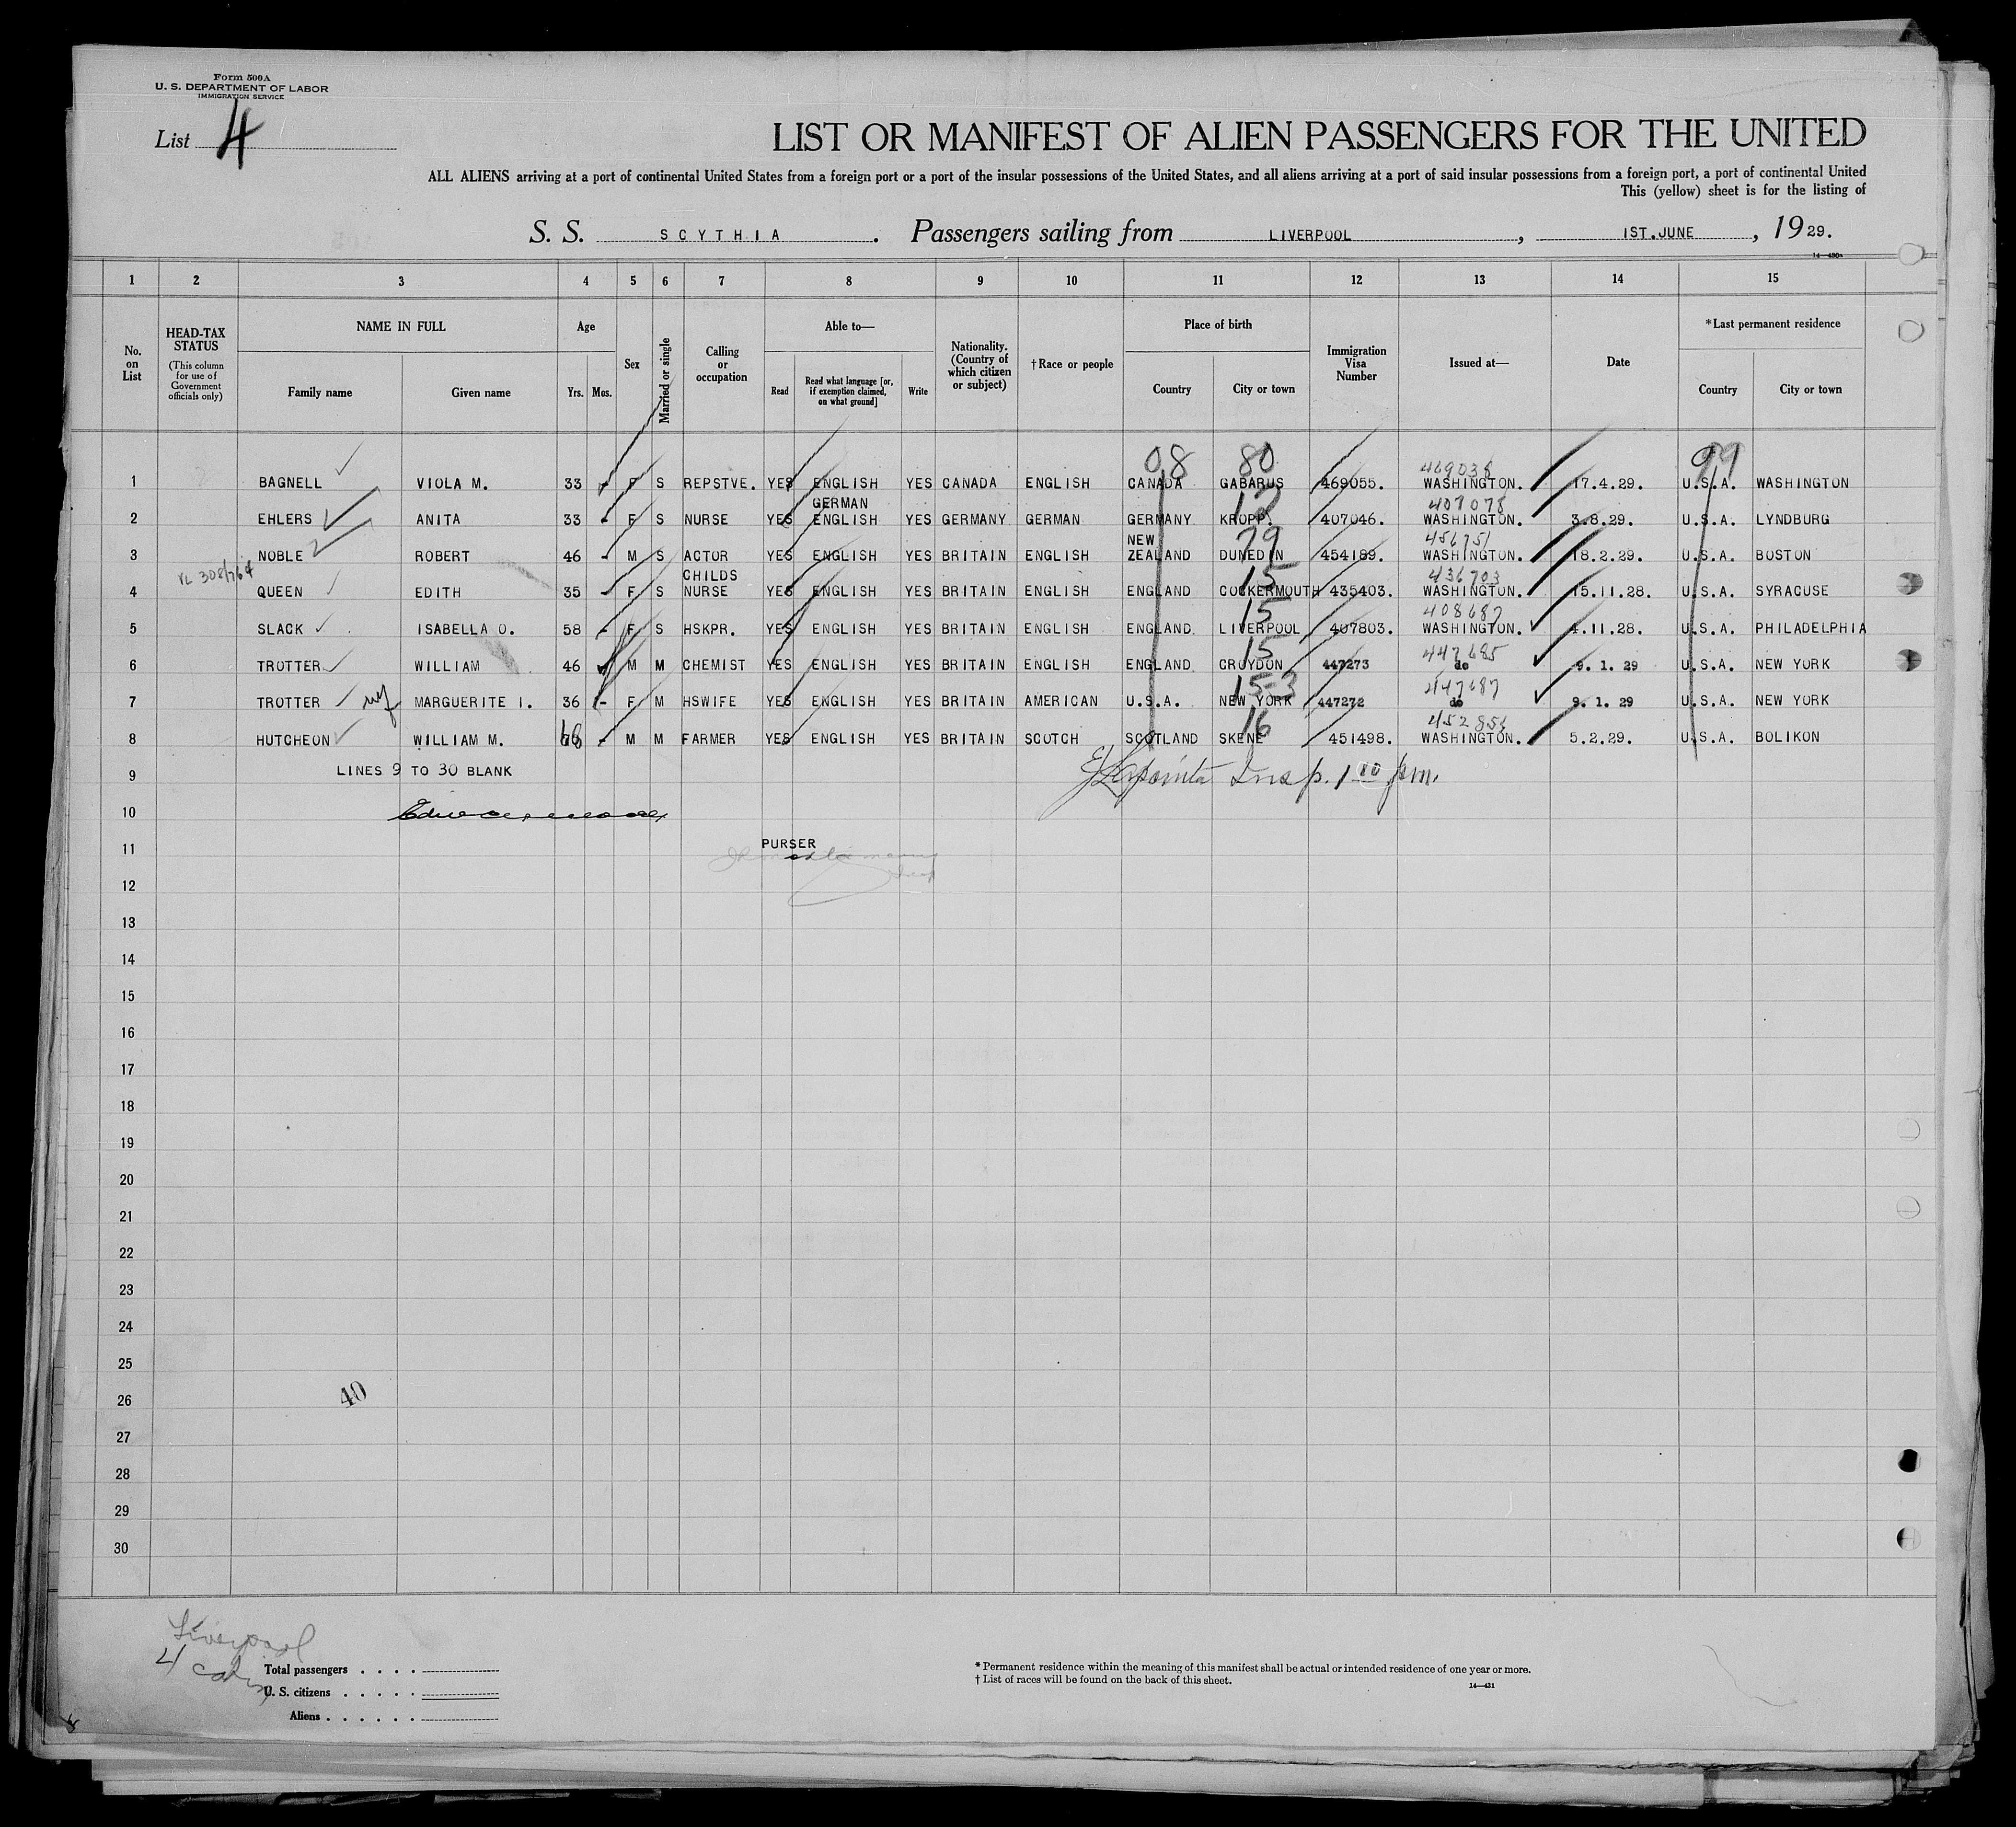 Form 500A
U. S. DEPARTMENT OF LABOR
IMMIGRATION SERVICE
List 4
LIST OR MANIFEST OF ALIEN PASSENGERS FOR THE UNITED
ALL ALIENS arriving at a port of continental United States from a foreign port or a port of the insular possessions of the United States, and all aliens arriving at a port of said insular possessions from a foreign port, a port of continental United
This (yellow) sheet is for the listing of
S. S. SCYTHIA. Passengers sailing from LIVERPOOL, 1ST.JUNE, 1929.
14—430a
1 2 3 4 5 6 7 8 9 10 11 12 13 14 15
No. on List
HEAD-TAX STATUS
(This column for use of Government officials only)
NAME IN FULL
Family name
Given name
Age
Yrs. Mos.
Sex
Married or single
Calling or occupation
Able to—
Read
Read what language [or, if exemption claimed, on what ground]
Write
Nationality. (Country of which citizen or subject)
†Race or people
Place of birth
Country
City or town
Immigration Visa Number
Issued at—
Date
*Last permanent residence
Country
City or town
08 80 99
1 BAGNELL VIOLA M. 33 - F S REPSTVE. YES ENGLISH YES CANADA ENGLISH CANADA GABARUS 469055. WASHINGTON. 17.4.29. U.S.A. WASHINGTON
GERMAN 12 407078
2 EHLERS ANITA 33 - F S NURSE YES ENGLISH YES GERMANY GERMAN GERMANY KROPP. 407046. WASHINGTON. 3.8.29. U.S.A. LYNDBURG
NEW 79 456751
3 NOBLE ROBERT 46 - M S ACTOR YES ENGLISH YES BRITAIN ENGLISH ZEALAND DUNEDIN 454189. WASHINGTON. 18.2.29. U.S.A. BOSTON
CHILDS 15 436703
4 QUEEN EDITH 35 - F S NURSE YES ENGLISH YES BRITAIN ENGLISH ENGLAND COCKERMOUTH 435403. WASHINGTON. 15.11.28. U.S.A. SYRACUSE
15 408687
5 SLACK ISABELLA O. 58 - F S HSKPR. YES ENGLISH YES BRITAIN ENGLISH ENGLAND. LIVERPOOL 407803. WASHINGTON. 4.11.28. U.S.A. PHILADELPHIA
15 447685
6 TROTTER WILLIAM 46 M M CHEMIST YES ENGLISH YES BRITAIN ENGLISH ENGLAND CROYDON 447273 do 9. 1. 29 U.S.A. NEW YORK
15-3 447687
7 TROTTER MARGUERITE I. 36 - F M HSWIFE YES ENGLISH YES BRITAIN AMERICAN U.S.A. NEW YORK 447272 do 9. 1. 29 U.S.A. NEW YORK
16
8 HUTCHEON WILLIAM M. 68 - M M FARMER YES ENGLISH YES BRITAIN SCOTCH SCOTLAND SKENE 451498. WASHINGTON. 5.2.29. U.S.A. BOLIKON
9 LINES 9 TO 30 BLANK
Insp. 1 00 p.m.
10
11 PURSER
12
13
14
15
16
17
18
19
20
21
22
23
24
25
26
40
27
28
29
30
Liverpool
4 cabin
Total passengers
U. S. citizens
Aliens
* Permanent residence within the meaning of this manifest shall be actual or intended residence of one year or more.
† List of races will be found on the back of this sheet.
14—431